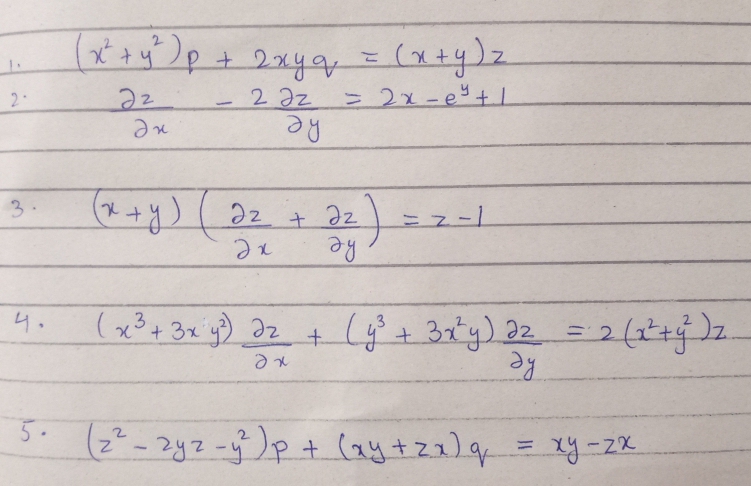 1. (x² + y²)p + 2xyq = (x+y)z
2. ∂z/∂x - 2 ∂z/∂y = 2x - eʸ + 1
3. (x+y) (∂z/∂x + ∂z/∂y) = z - 1
4. (x³ + 3xy²) ∂z/∂x + (y³ + 3x²y) ∂z/∂y = 2(x²+y²)z
5. (z² - 2yz - y²)p + (xy + zx)q = xy - zx